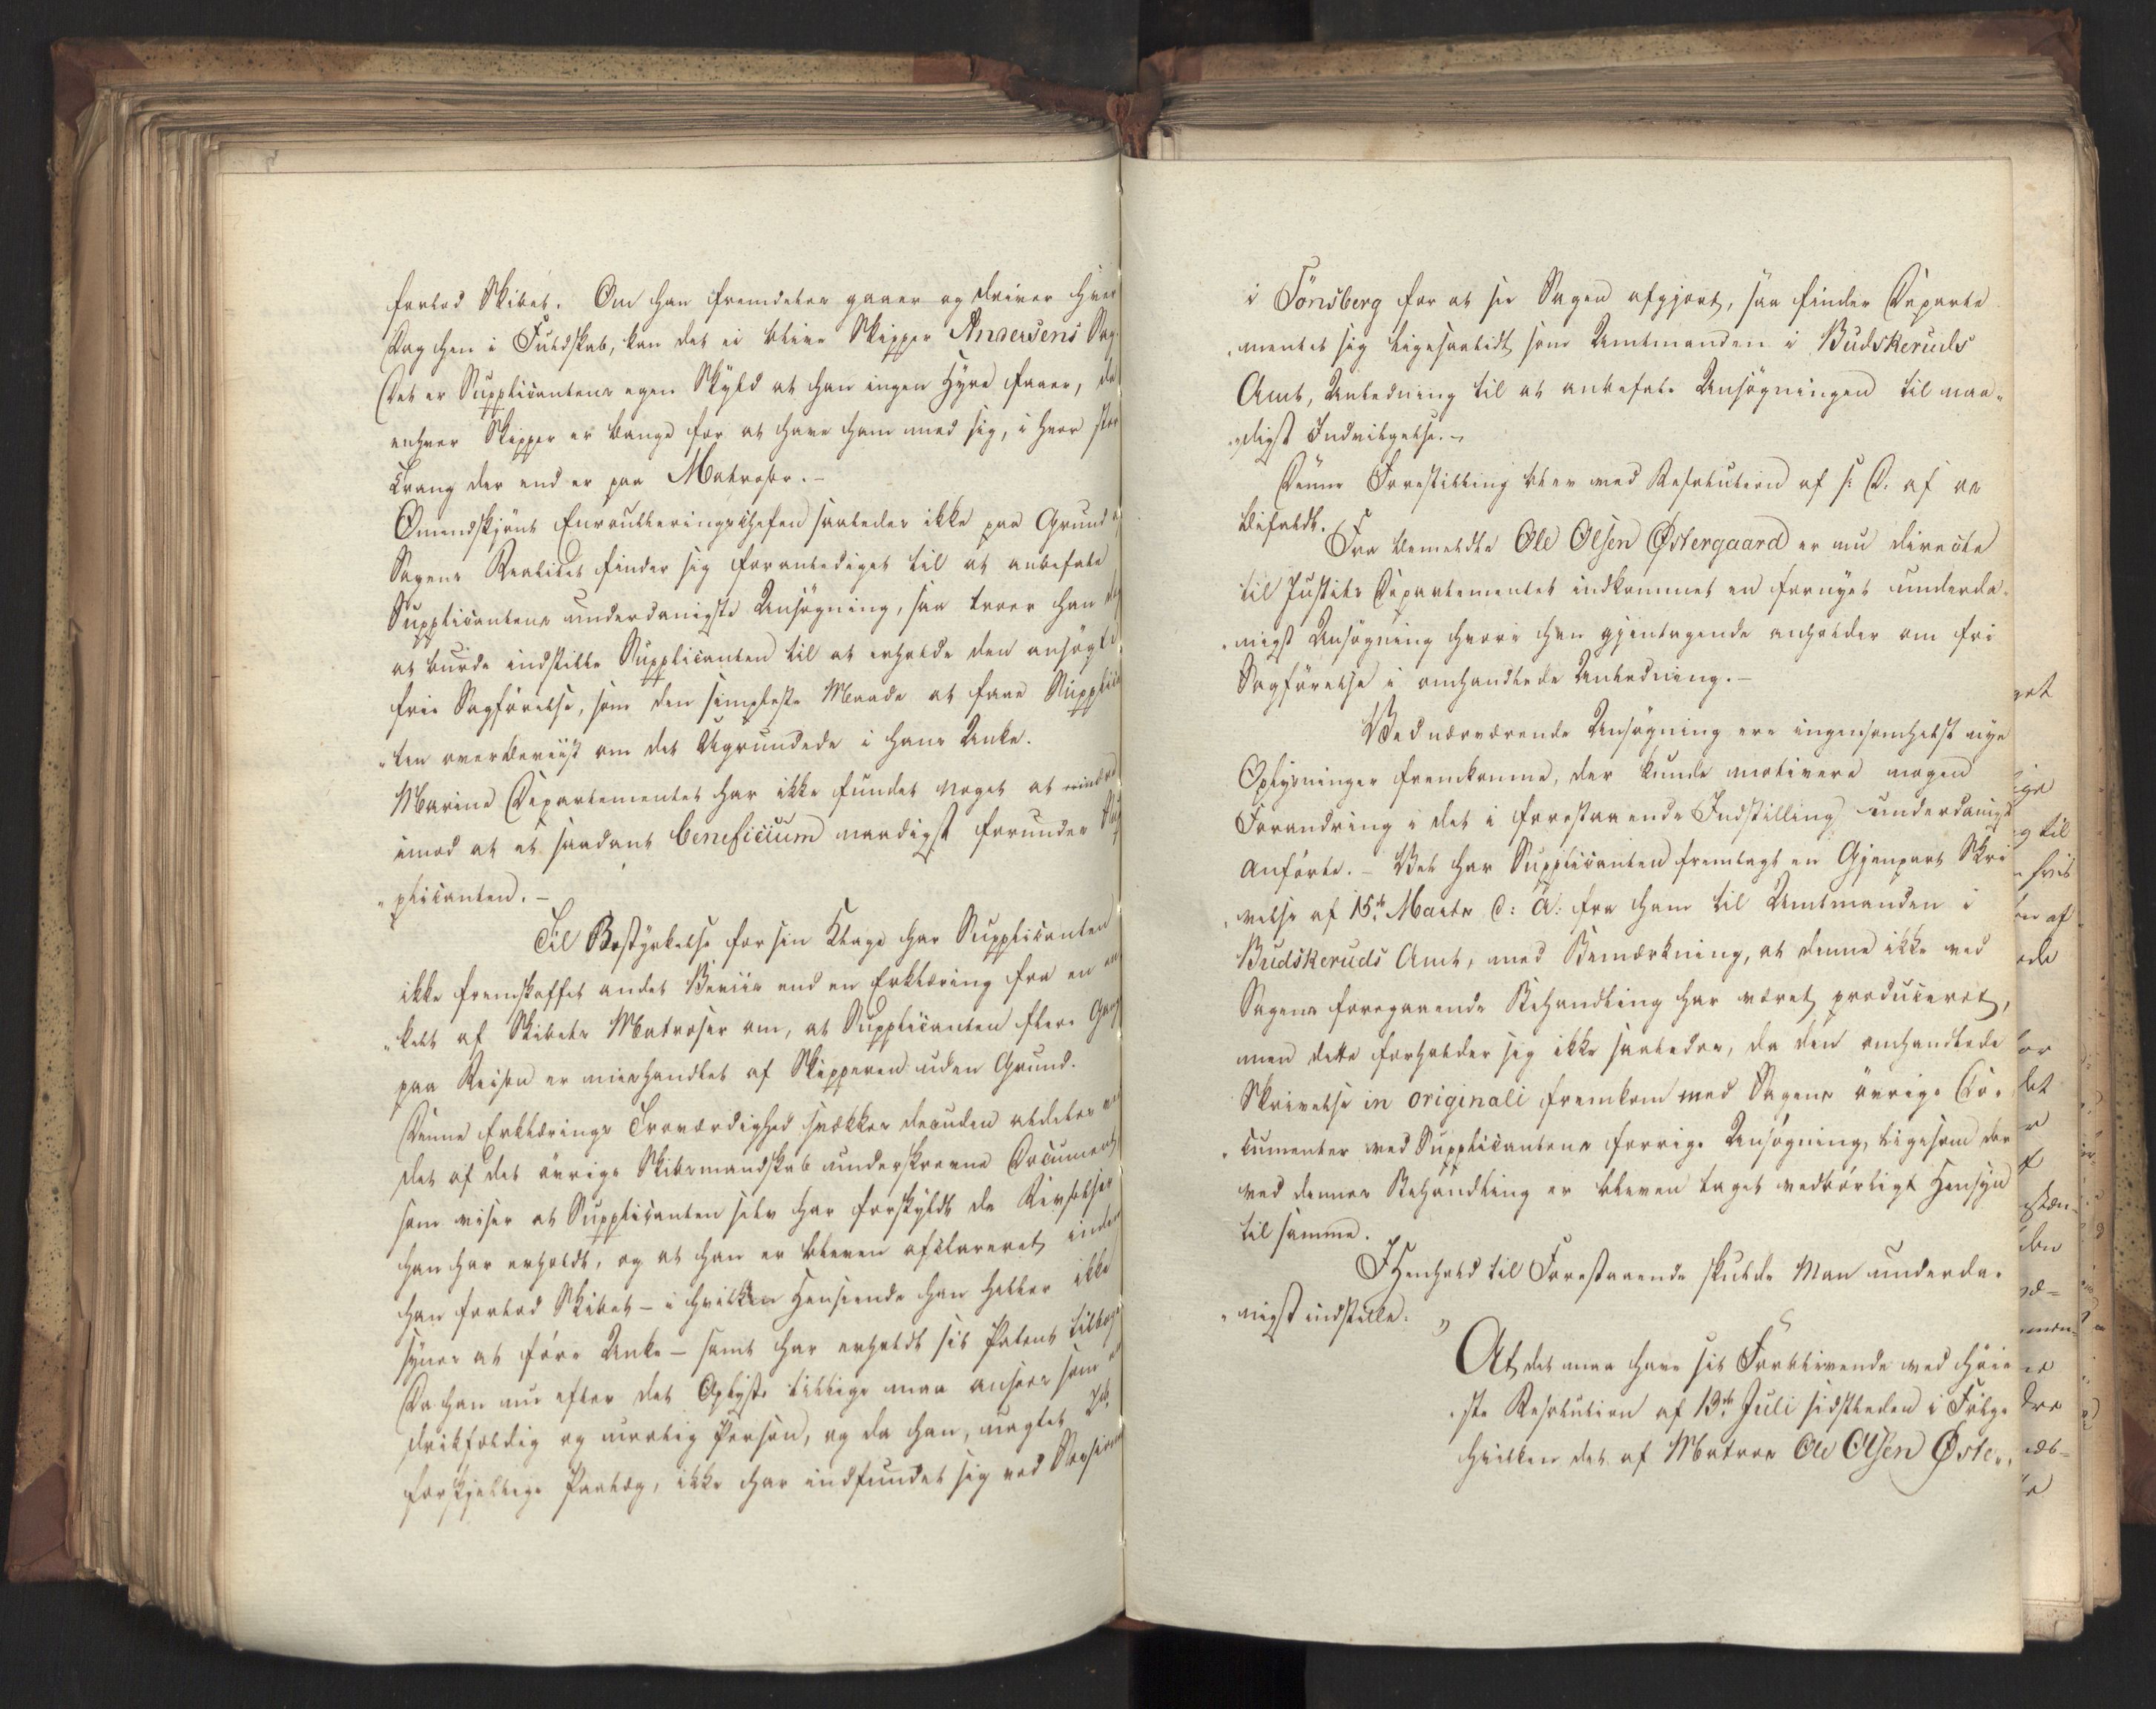 forlod Skibet. Om han fremdeles gaaer og driver hver
Dag hen i Fuldskab, kan det ei blive Skipper Andersens Sag.
Det er Supplicantens egen Skyld at han ingen Hyre faaer, da
enhver Skipper er bange for at have ham med sig, i hvor stor
Trang der end er paa Matroser.-
Omendskjönt Enroulleringschefen saaledes ikke paa Grund af
Sagens Realitet finder sig foranlediget til at anbefale
Supplicantens underdanigste Ansögning, saa troer han dog
at burde indstille Supplicanten til at erholde den ansögte
frie Sagförelse, som den simpleste Maade at faae Supplican
„ten overbeviist om det Ugrundede i hans Anke.
Marine Departementet har ikke fundet noget at erindre
imod at et saadant beneficium naadigst forundes Sup
„plicanten.-
Til Bestyrkelse for sin Klage har Supplicanten
ikke fremskaffet andet Beviis end en Erklæring fra en en
„kelt af Skibets Matroser om, at Supplicanten flere Gange
paa Reisen er mishandlet af Skipperen uden Grund.
Denne Erklærings Troværdighed svækkes desuden aldeles ved
det af det övrige Skibsmandskab underskrevne Document,
som viser at Supplicanten selv har forskyldt de Revselser
han har erholdt, og at han er bleven afclareret inden
han forlod Skibet - i hvilken Henseende han heller ikke
synes at före Anke - samt har erholdt sit Patent tilbage
Da han nu efter det Oplyste tillige maa ansees som en
drikfældig og urolig Person, og da han, uagtet
forskjellige Paalæg, ikke har indfundet sig ved Sessionen
i Tönsberg for at see Sagen afgjort, saa finder Departe
„mentet sig ligesaalidt som Amtmanden i Budskeruds
Amt, Anledning til at anbefale Ansögningen til naa„
„digst Indvilgelse.-
Denne Forestilling blev ved Resolution af s: D: af os
bifaldt.
Fra bemeldte Ole Olsen Östergaard er nu directe
til Justits Departementet indkommet en fornyet underda„
„nigst Ansögning hvori han gjentagende anholder om fri
Sagförelse i omhandlede Anledning.-
Ved nærværende Ansögning ere ingensomhelst nye
Oplysninger fremkomne, der kunde motivere nogen
Forandring i det i forestaaende Indstilling underdanigst
Anförte. - Vel har Supplicanten fremlagt en Gjenpart Skri
„velse af 15de Marts d: A: fra ham til Amtmanden i
Budskeruds Amt, med Bemærkning, at denne ikke ved
Sagens foregaaende Behandling har været produceret,
men dette forholder sig ikke saaledes, da den omhandlede
Skrivelse in originali fremkom med Sagens övrige Do„
„cumenter ved Supplicantens forrige Ansögning, ligesom der
ved dennes Behandling er bleven taget vedbörligt Hensyn
til samme.
I Henhold til Forestaaende skulde Man underda„
„nigst indstille:
„At det maa have sit Forblivende ved höie
„ste Resolution af 13de Juli sidstleden i Fölge
hvilken det af Matros Ole Olsen Öste„